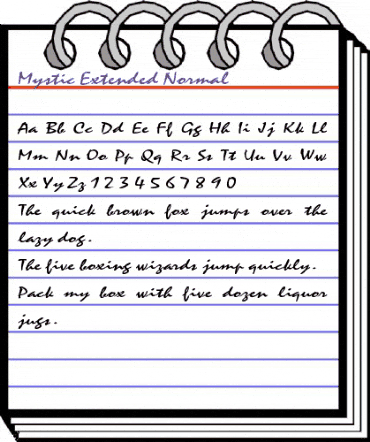 Mystic Extended Normal
Aa Bb Cc Dd Ee Ff Gg Hh Ii Jj Kk Ll
Mm Nn Oo Pp Qq Rr Ss Tt Uu Vv Ww
Xx Yy Zz 1 2 3 4 5 6 7 8 9 0
The quick brown fox jumps over the
lazy dog.
The five boxing wizards jump quickly.
Pack my box with five dozen liquor
jugs.